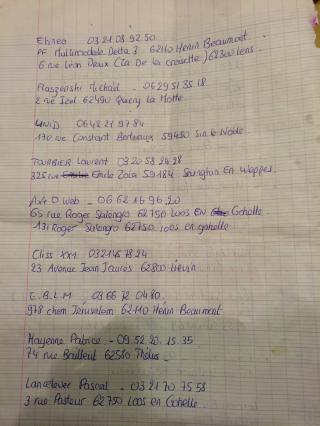 Ebnea 03 21 08 92 50
PF Multimodale Delta 3 62110 Henin Beaumont
6 rue Léon Dieux (ZA De la croisette) 62300 Lens.
Michaël - 06 29 51 35 18
2 rue 62490 Quiery La Motte
06 48 21 97 84
170 rue Constant 59450 Sin le Noble.
TOURBIER Laurent 03 20 58 24 28
325 rue Emile Zola 59184 Sainghin En Weppes.
Axe O web - 06 62 16 96 20
65 rue Roger Salengro 62750 LOOS EN Gohelle
131 Roger Salengro 62750 Loos en gohelle
Cliss XXI - 0321457824
23 Avenue Jean Jaurès 62800 Liévin
E.B.L.M 03 66 72 04 80.
978 chem Jérusalem 62110 Henin Beaumont
Mayenne Patrice - 09.52.20.15.35
74 rue Bailleul 62580 Thélus.
Lancelever Pascal - 03 21 70 75 58
3 rue Pasteur 62750 Loos en Gohelle.